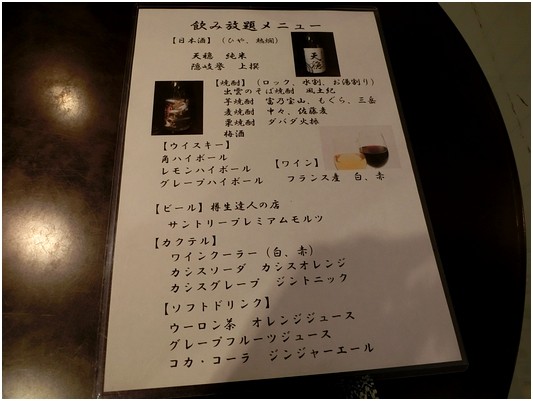 飲み放題メニュー
【日本酒】(ひや、熱燗)
天穏 純米
隠岐誉 上撰
天穏
【焼酎】(ロック、水割、お湯割り)
出雲のそば焼酎 風土紀
芋焼酎 富乃宝山、もぐら、三岳
麦焼酎 中々、佐藤麦
栗焼酎 ダバダ火振
梅酒
【ウイスキー】
角ハイボール
レモンハイボール
グレープハイボール
【ワイン】
フランス産 白、赤
【ビール】樽生達人の店
サントリープレミアムモルツ
【カクテル】
ワインクーラー(白、赤)
カシスソーダ カシスオレンジ
カシスグレープ ジントニック
【ソフトドリンク】
ウーロン茶 オレンジジュース
グレープフルーツジュース
コカ・コーラ ジンジャーエール